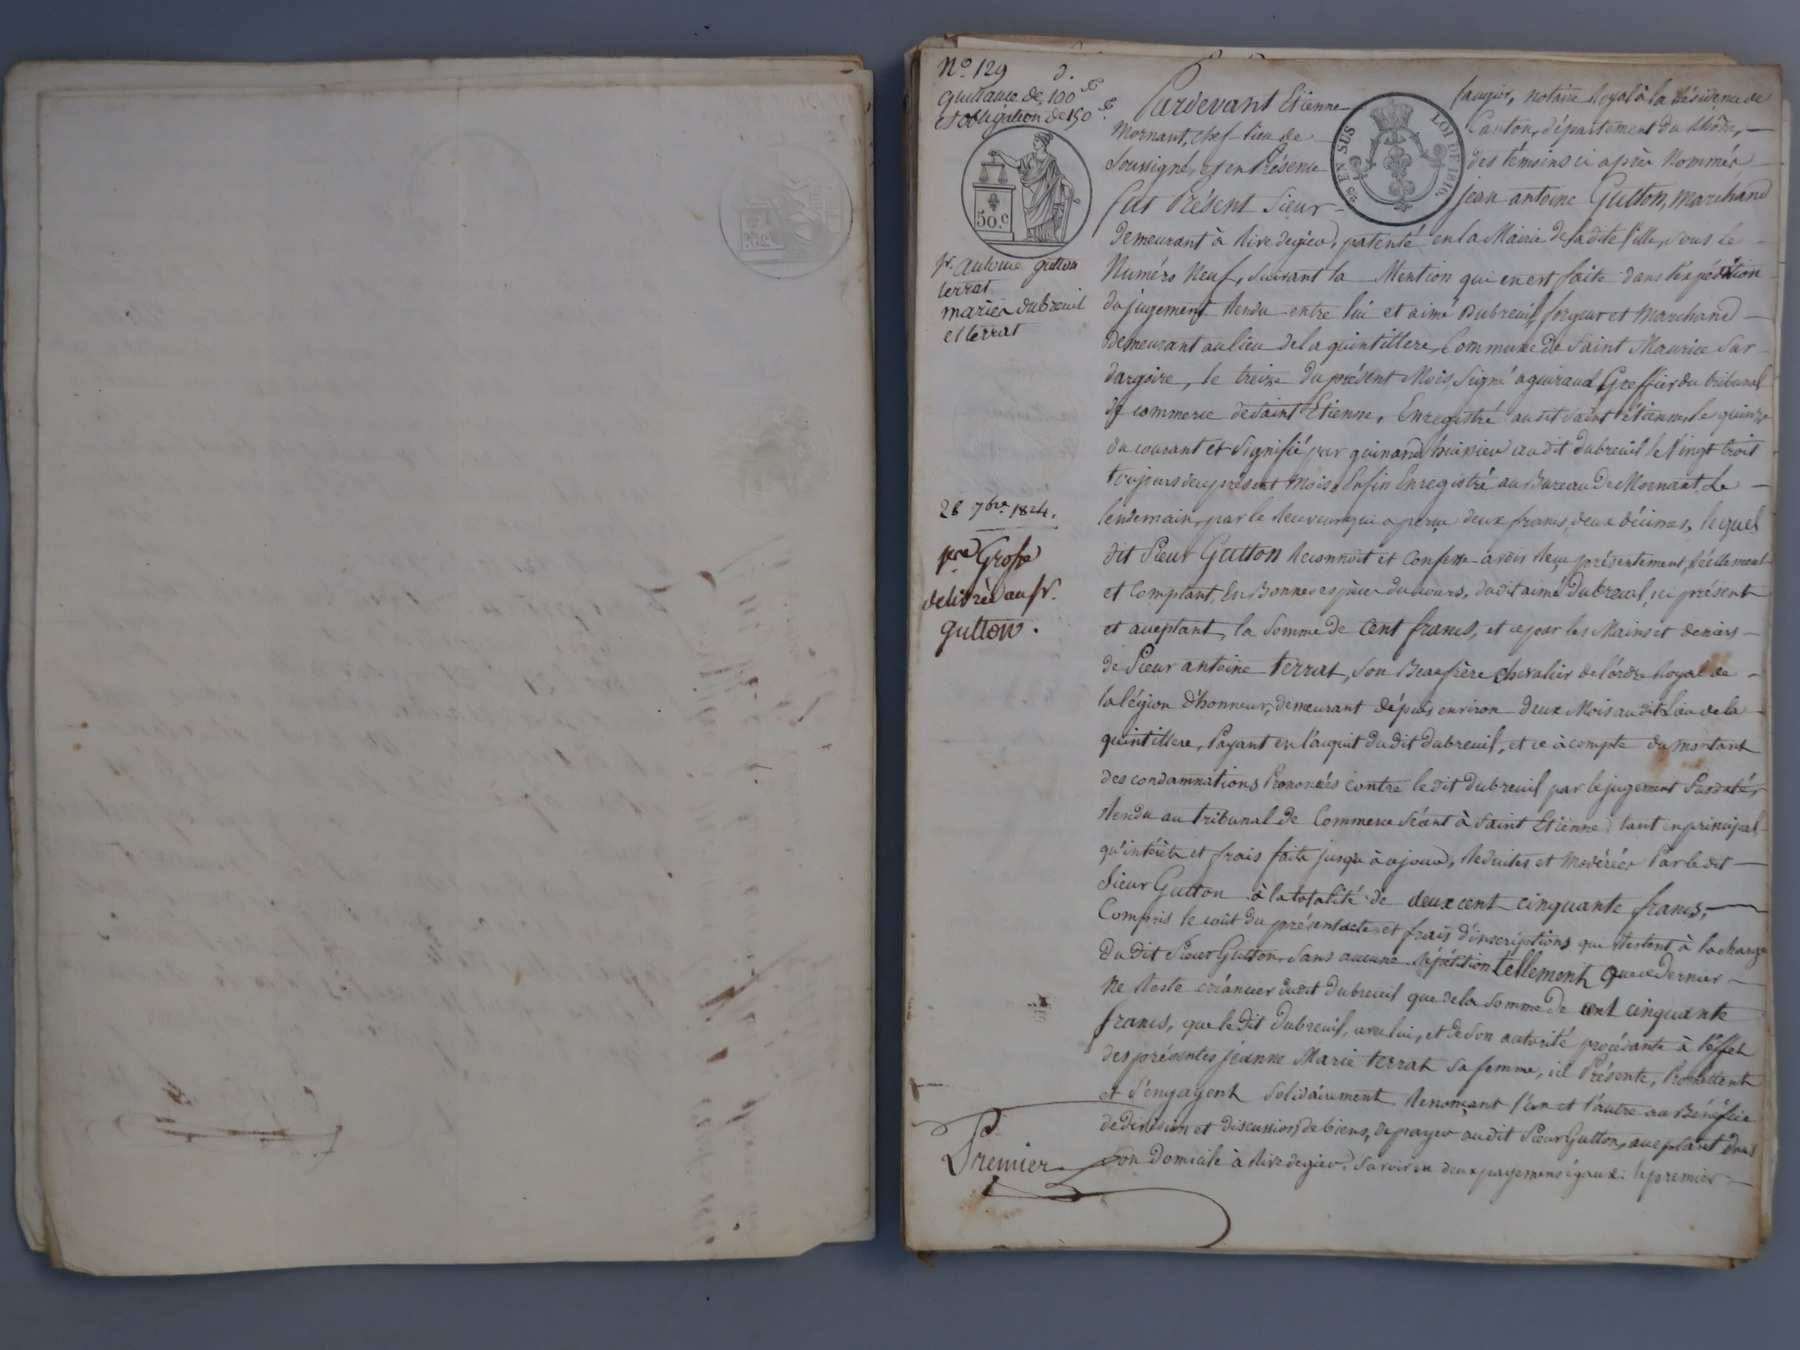 N.o 129 d.
Quittance de 100 f.
et obligation de 150 f.
50.c
Sr. antoine gutton
terrat
mariée dubreuil
et terrat
28 7bre 1824.
pre Grosse
delivrée au Sr.
gutton.
2/10 EN SUS LOI DE 1816.
Pardevant Etienne faugier, notaire Royal à la Résidence de
Mornant, chef lieu de Canton, département du Rhône,
Soussigné, et en Présence des témoins ci après Nommés
fut Présent Sieur jean antoine Gutton, marchand
demeurant à Rive degier, patenté en la Mairie de ladite Ville, sous le
Numéro Neuf, suivant la Mention qui en est faite dans l'expédition
du jugement Rendu entre lui et aimé Dubreuil, forgeur et Marchand
demeurant au lieu de la quintillere, Commune de Saint Maurice Sur
dargoire, le treize du présent Mois, Signé aguiraud, Greffier du tribunal
de commerce de Saint Etienne, Enregistré audit Saint étienne, le quinze
du courant et signifié par quinard huissier audit dubreuil le Vingt trois
toujours du présent mois, Enfin Enregistré au Bureau de Mornant, Le
lendemain, par le Receveur qui a perçu deux francs, deux décimes, lequel
dit Sieur Gutton Reconnoit et Confesse avoir Reçu présentement, Réellement
et Comptant, En Bonnes espèces du cours, dudit aimé Dubreuil, ici présent
et aceptant, la Somme de Cent francs, et ce par les Mains et deniers
de Sieur antoine terrat, Son Beaufrère Chevalier de l'ordre Royal de
la légion d'honneur, demeurant dépuis environ deux Mois audit Lieu de la
quintillere, Payant en l'acquit dudit dubreuil, et ce à compte du montant
des condamnations Prononcées contre ledit Dubreuil par le jugement Susdaté,
Rendu au tribunal de Commerce Séant à Saint Etienne, tant en principal
qu'intérêts et frais faits jusqu'à ce jour, Réduites et Modérées Par le dit
Sieur Gutton à la totalité de deux cent cinquante francs,
Compris le coût du présent acte et frais d'inscriptions qui Restent à la charge
du dit Sieur Gutton, Sans aucune Répétition tellement Que ce Dernier
Ne Reste créancier dudit dubreuil que de la Somme de cent cinquante
francs, que le dit dubreuil, avec lui, et de Son autorité procédante à l'effet
des présentes jeanne Marie terrat Sa femme, ici Présente, Promettent
et S'engagent Solidairement Renonçant l'un et l'autre au Bénéfice
de division et discussion de biens, de payer audit Sieur Gutton, aceptant dans
Son Domicile à Rive degier, Savoir en deux payemens égaux: le premier
Premier